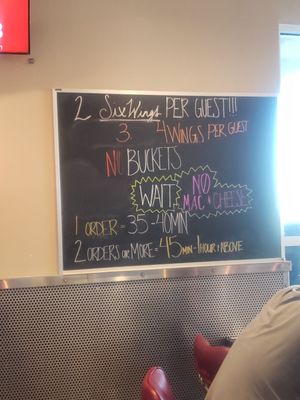 2 Six Wings PER GUEST!!!
3 4 WINGS PER GUEST
NO BUCKETS
WAIT NO
MAC & CHEESE
1 ORDER = 35-40MIN
2 ORDERS OR MORE = 45MIN-1HOUR & ABOVE